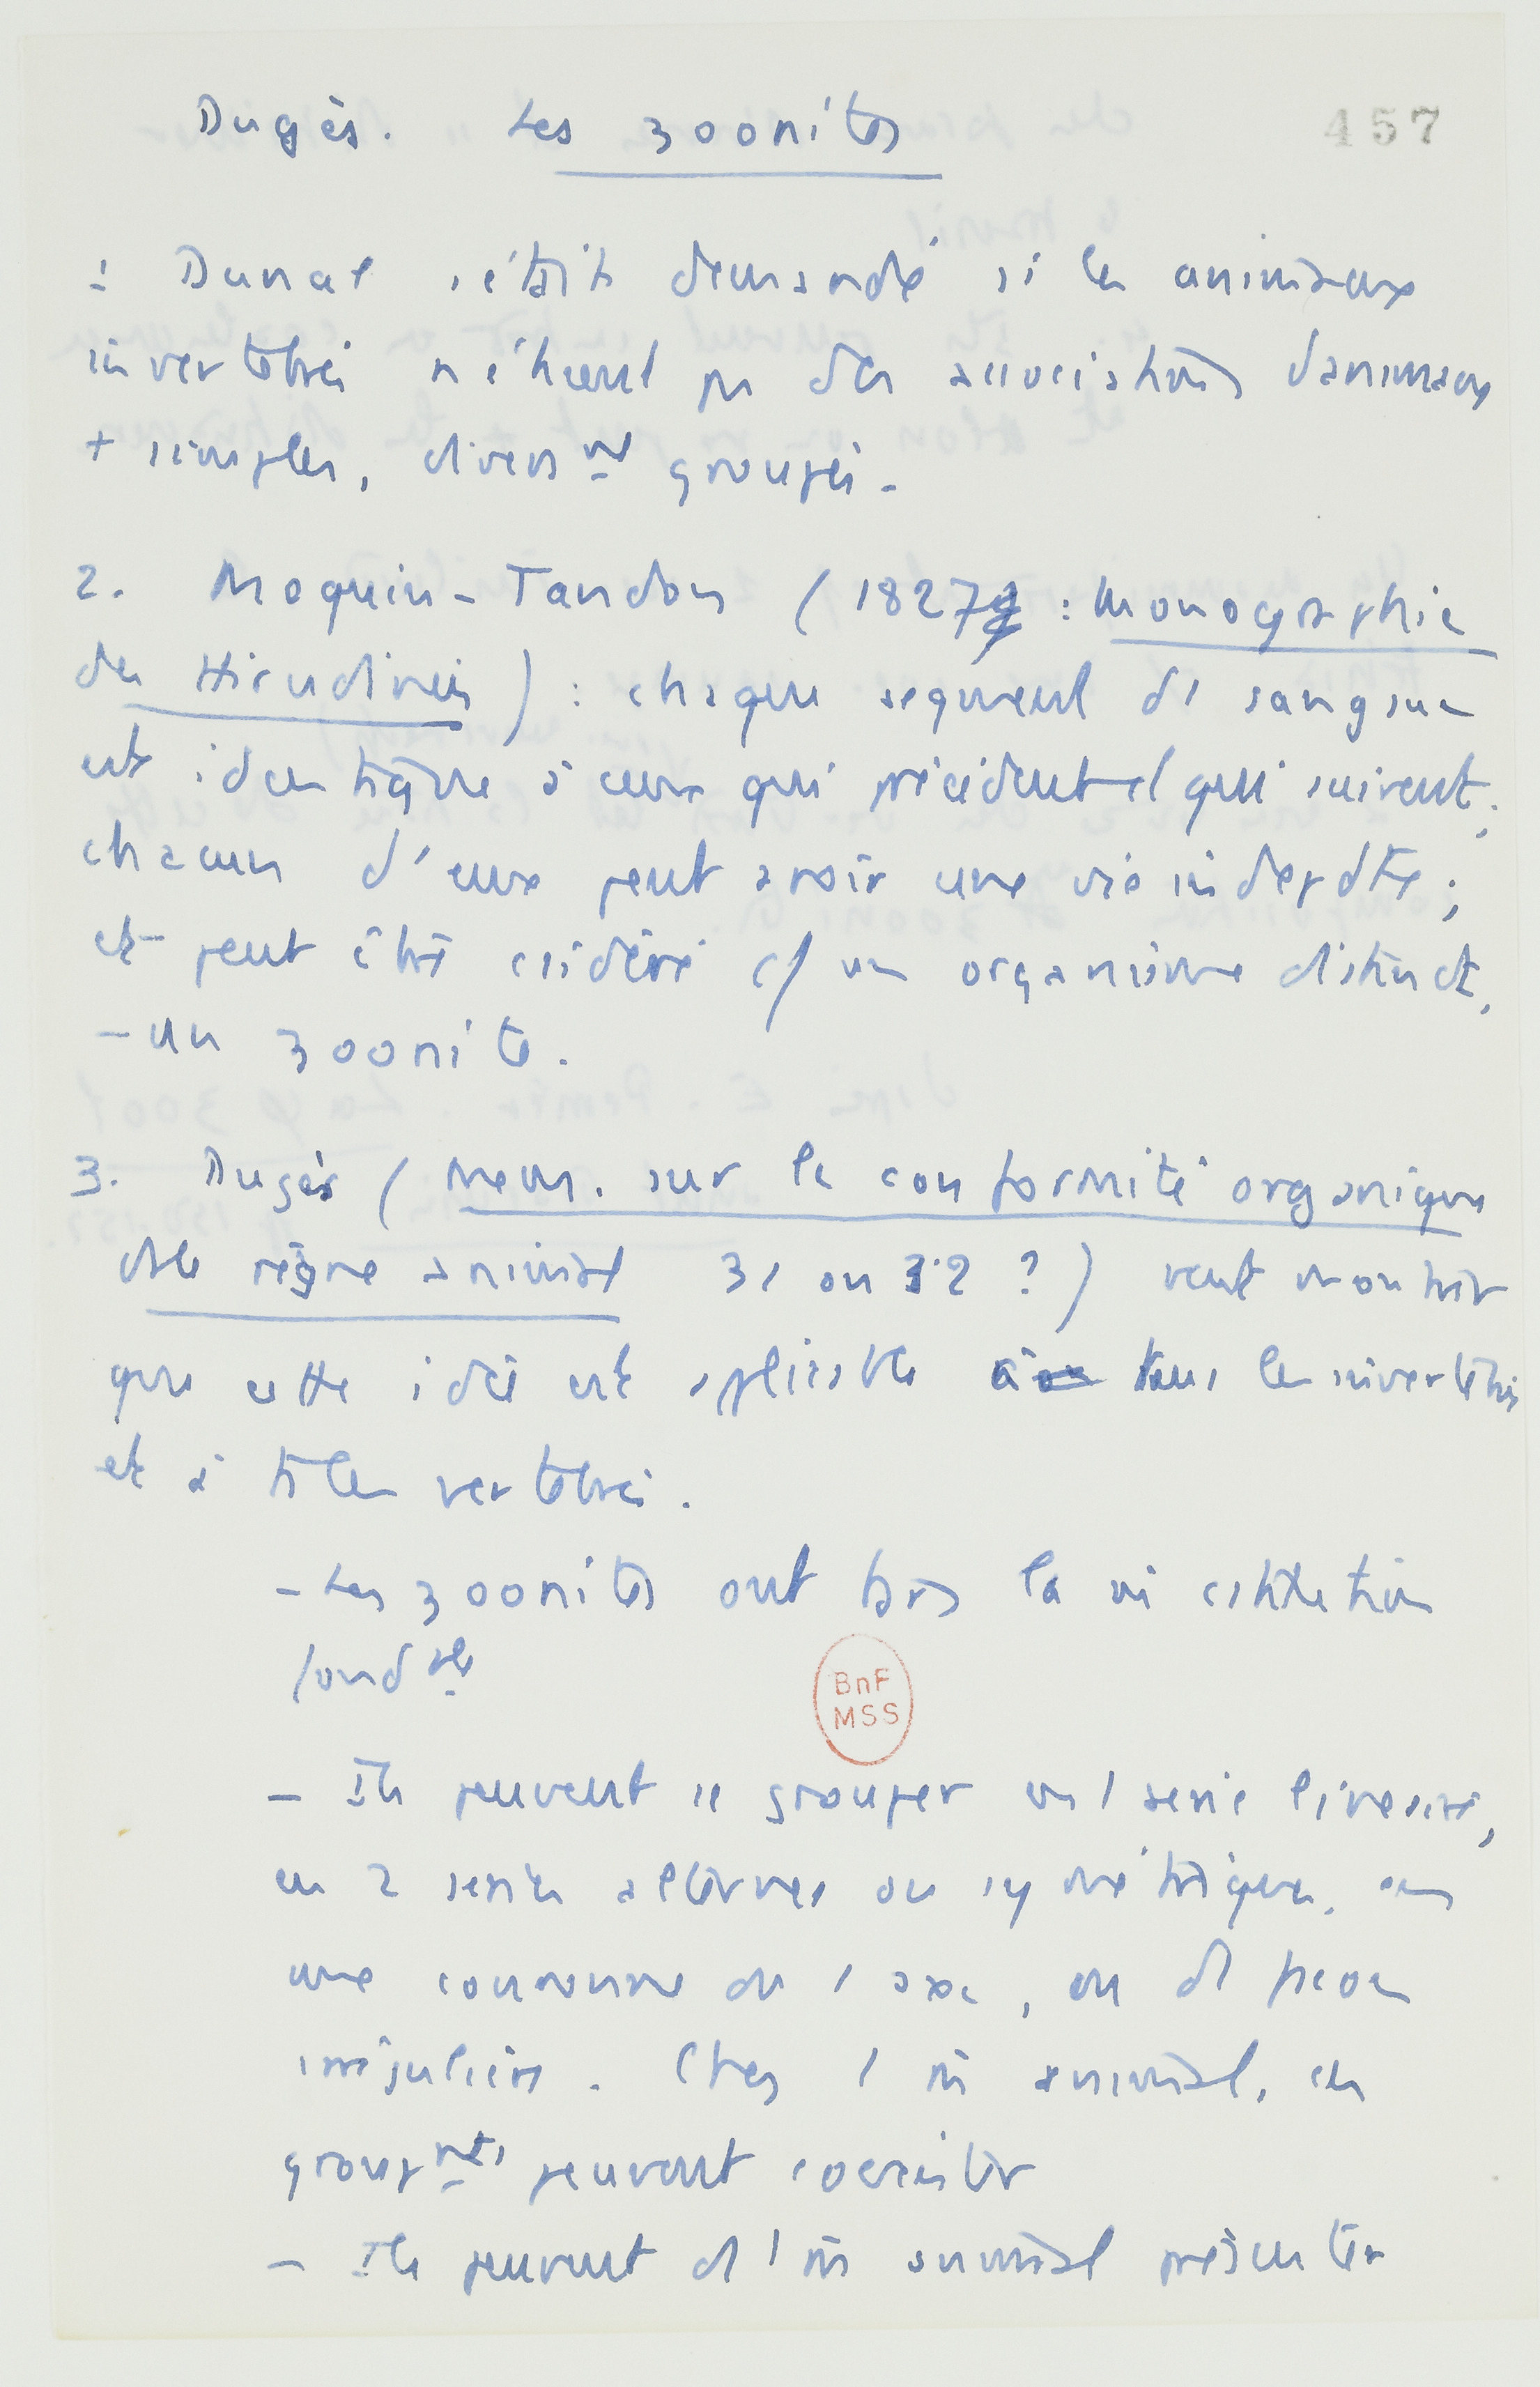 Dugès. Les zoonites
457
1 Dunal s'était demandé si les animaux
invertébrés n'étaient pas des associations d'animaux
+ simples, divers^mt groupés.
2. Moquin-Tandon (1827 : Monographie
des Hirudinées) : chaque segment de sangsue
est identique à ceux qui précèdent et qui suivent ;
chacun d'eux peut avoir une vie indepdte ;
et peut être csidéré c/ un organisme distinct,
- un zoonite.
3. Dugès (Mem. sur la conformité organique
ds le règne animal 31 ou 32 ?) veut montrer
que cette idée est applicable à tous les invertébrés
et à ts les vertébrés.
- Les zoonites ont tous la m̂ cstitution
fond^ale
BnF
MSS
- Ils peuvent se grouper en 1 série linéaire,
en 2 séries alternes ou symétriques, en
une couronne ou 1 axe, ou de façon
irrégulière. Chez 1 m̂ animal, ces
group^mts peuvent coexister
- Ils peuvent ds 1 m̂ animal présenter